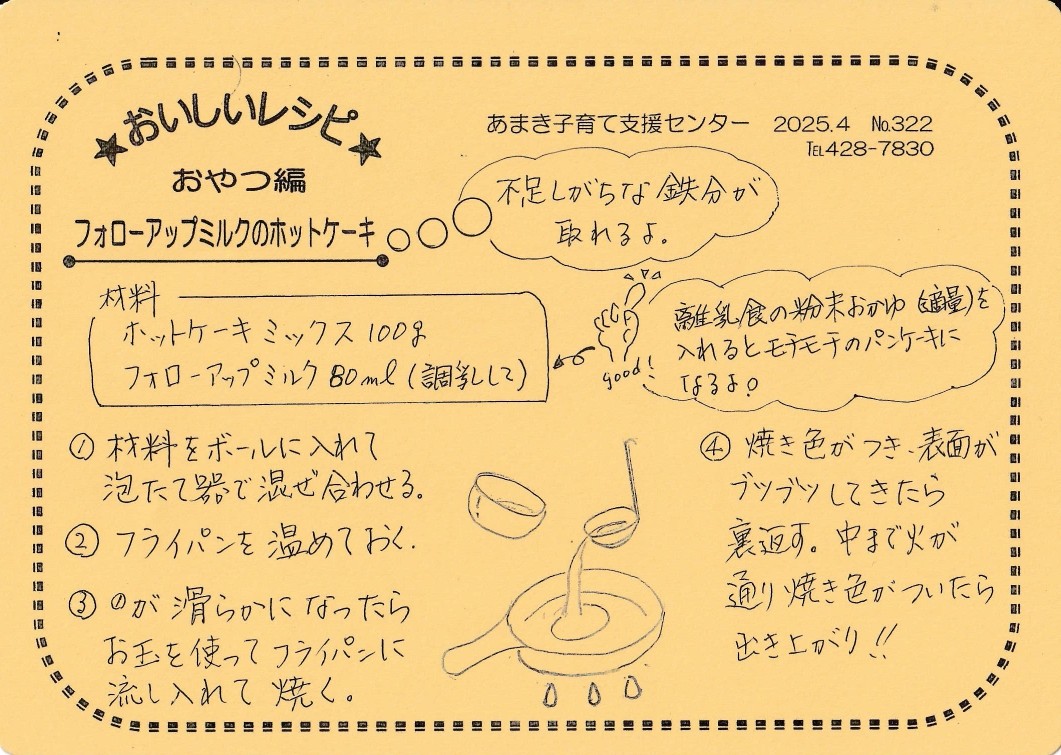 おいしいレシピ
おやつ編
あまき子育て支援センター 2025.4 No.322
TEL428-7830
フォローアップミルクのホットケーキ
不足しがちな鉄分が
取れるよ。
材料
ホットケーキミックス 100g
フォローアップミルク 80ml (調乳して)
good!
離乳食の粉末おかゆ(適量)を
入れるとモチモチのパンケーキに
なるよ。
① 材料をボールに入れて
泡たて器で混ぜ合わせる。
② フライパンを温めておく.
③ ①が滑らかになったら
お玉を使ってフライパンに
流し入れて 焼く。
④ 焼き色がつき、表面が
ブツブツしてきたら
裏返す。中まで火が
通り焼き色がついたら
出き上がり!!